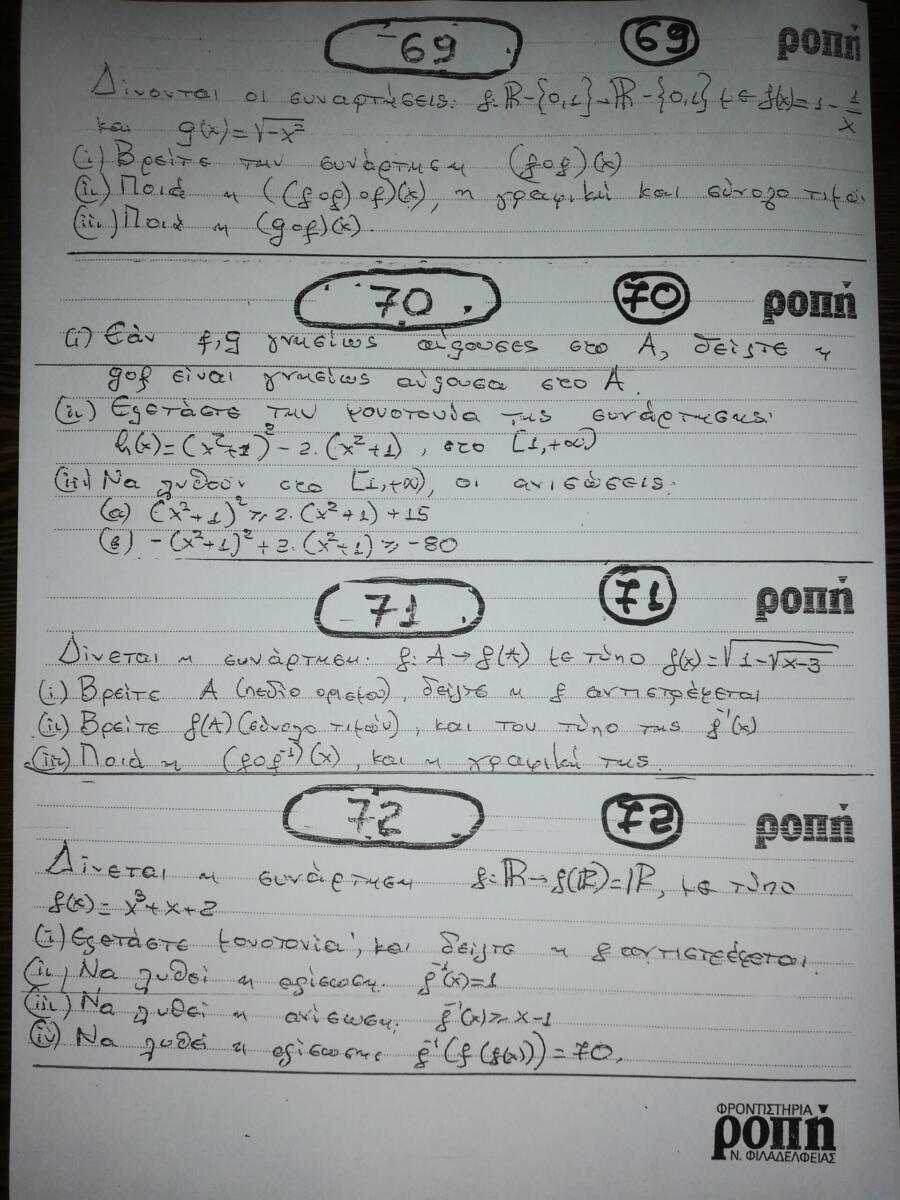 69 69 ροπή
Δίνονται οι συναρτήσεις: f:ℝ-{0,1}→ℝ-{0,1} με f(x)=1-1/x
και g(x)=√-x²
(i) Βρείτε την συνάρτηση (fof)(x)
(ii) Ποιά η ((fof)of)(x), η γραφική και σύνολο τιμώ
(iii) Ποιά η (gof)(x).
70 70 ροπή
(i) Εάν f,g γνησίως αύξουσες στο A, δείξτε η
gof είναι γνησίως αύξουσα στο A.
(ii) Εξετάστε την μονοτονία της συνάρτησης:
h(x)=(x²+1)²-2·(x²+1), στο [1,+∞)
(iii) Να λυθούν στο [1,+∞), οι ανισώσεις:
(α) (x²+1)²≥2·(x²+1)+15
(β) -(x²+1)²+2·(x²+1)≥-80
71 71 ροπή
Δίνεται η συνάρτηση: f:A→f(A) με τύπο f(x)=√(1-√(x-3))
(i) Βρείτε A (πεδίο ορισμού), δείξτε η f αντιστρέφεται
(ii) Βρείτε f(A) (σύνολο τιμών), και τον τύπο της f⁻¹(x)
(iii) Ποιά η (fof⁻¹)(x), και η γραφική της.
72 72 ροπή
Δίνεται η συνάρτηση f:ℝ→f(ℝ)=ℝ, με τύπο
f(x)=x³+x+2
(i) Εξετάστε μονοτονία, και δείξτε η f αντιστρέφεται.
(ii) Να λυθεί η εξίσωση: f⁻¹(x)=1
(iii) Να λυθεί η ανίσωση: f⁻¹(x)≥x-1
(iv) Να λυθεί η εξίσωση: f⁻¹(f(f(x)))=70.
ΦΡΟΝΤΙΣΤΗΡΙΑ
ροπή
Ν. ΦΙΛΑΔΕΛΦΕΙΑΣ